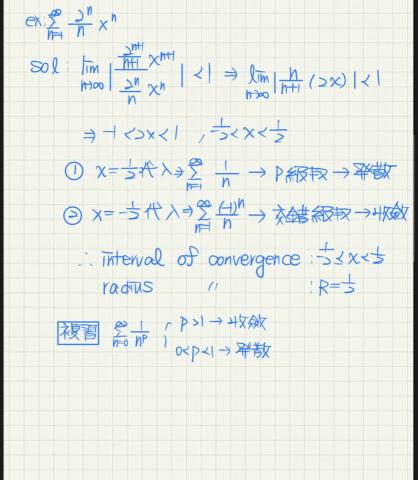 ex: ∑_{n=1}^{∞} 2^n/n x^n
sol: lim_{n→∞} | (2^{n+1}/(n+1) x^{n+1}) / (2^n/n x^n) | < 1 ⇒ lim_{n→∞} | n/(n+1) (2x) | < 1
⇒ -1 < 2x < 1 , -1/2 < x < 1/2
① x = 1/2 代入 ⇒ ∑_{n=1}^{∞} 1/n → P級數 → 發散
② x = -1/2 代入 ⇒ ∑_{n=1}^{∞} (-1)^n/n → 交錯級數 → 收斂
∴ interval of convergence : -1/2 ≤ x < 1/2
radius 〃 : R = 1/2
複習 ∑_{n=0}^{∞} 1/n^p , p > 1 → 收斂
0 < p < 1 → 發散